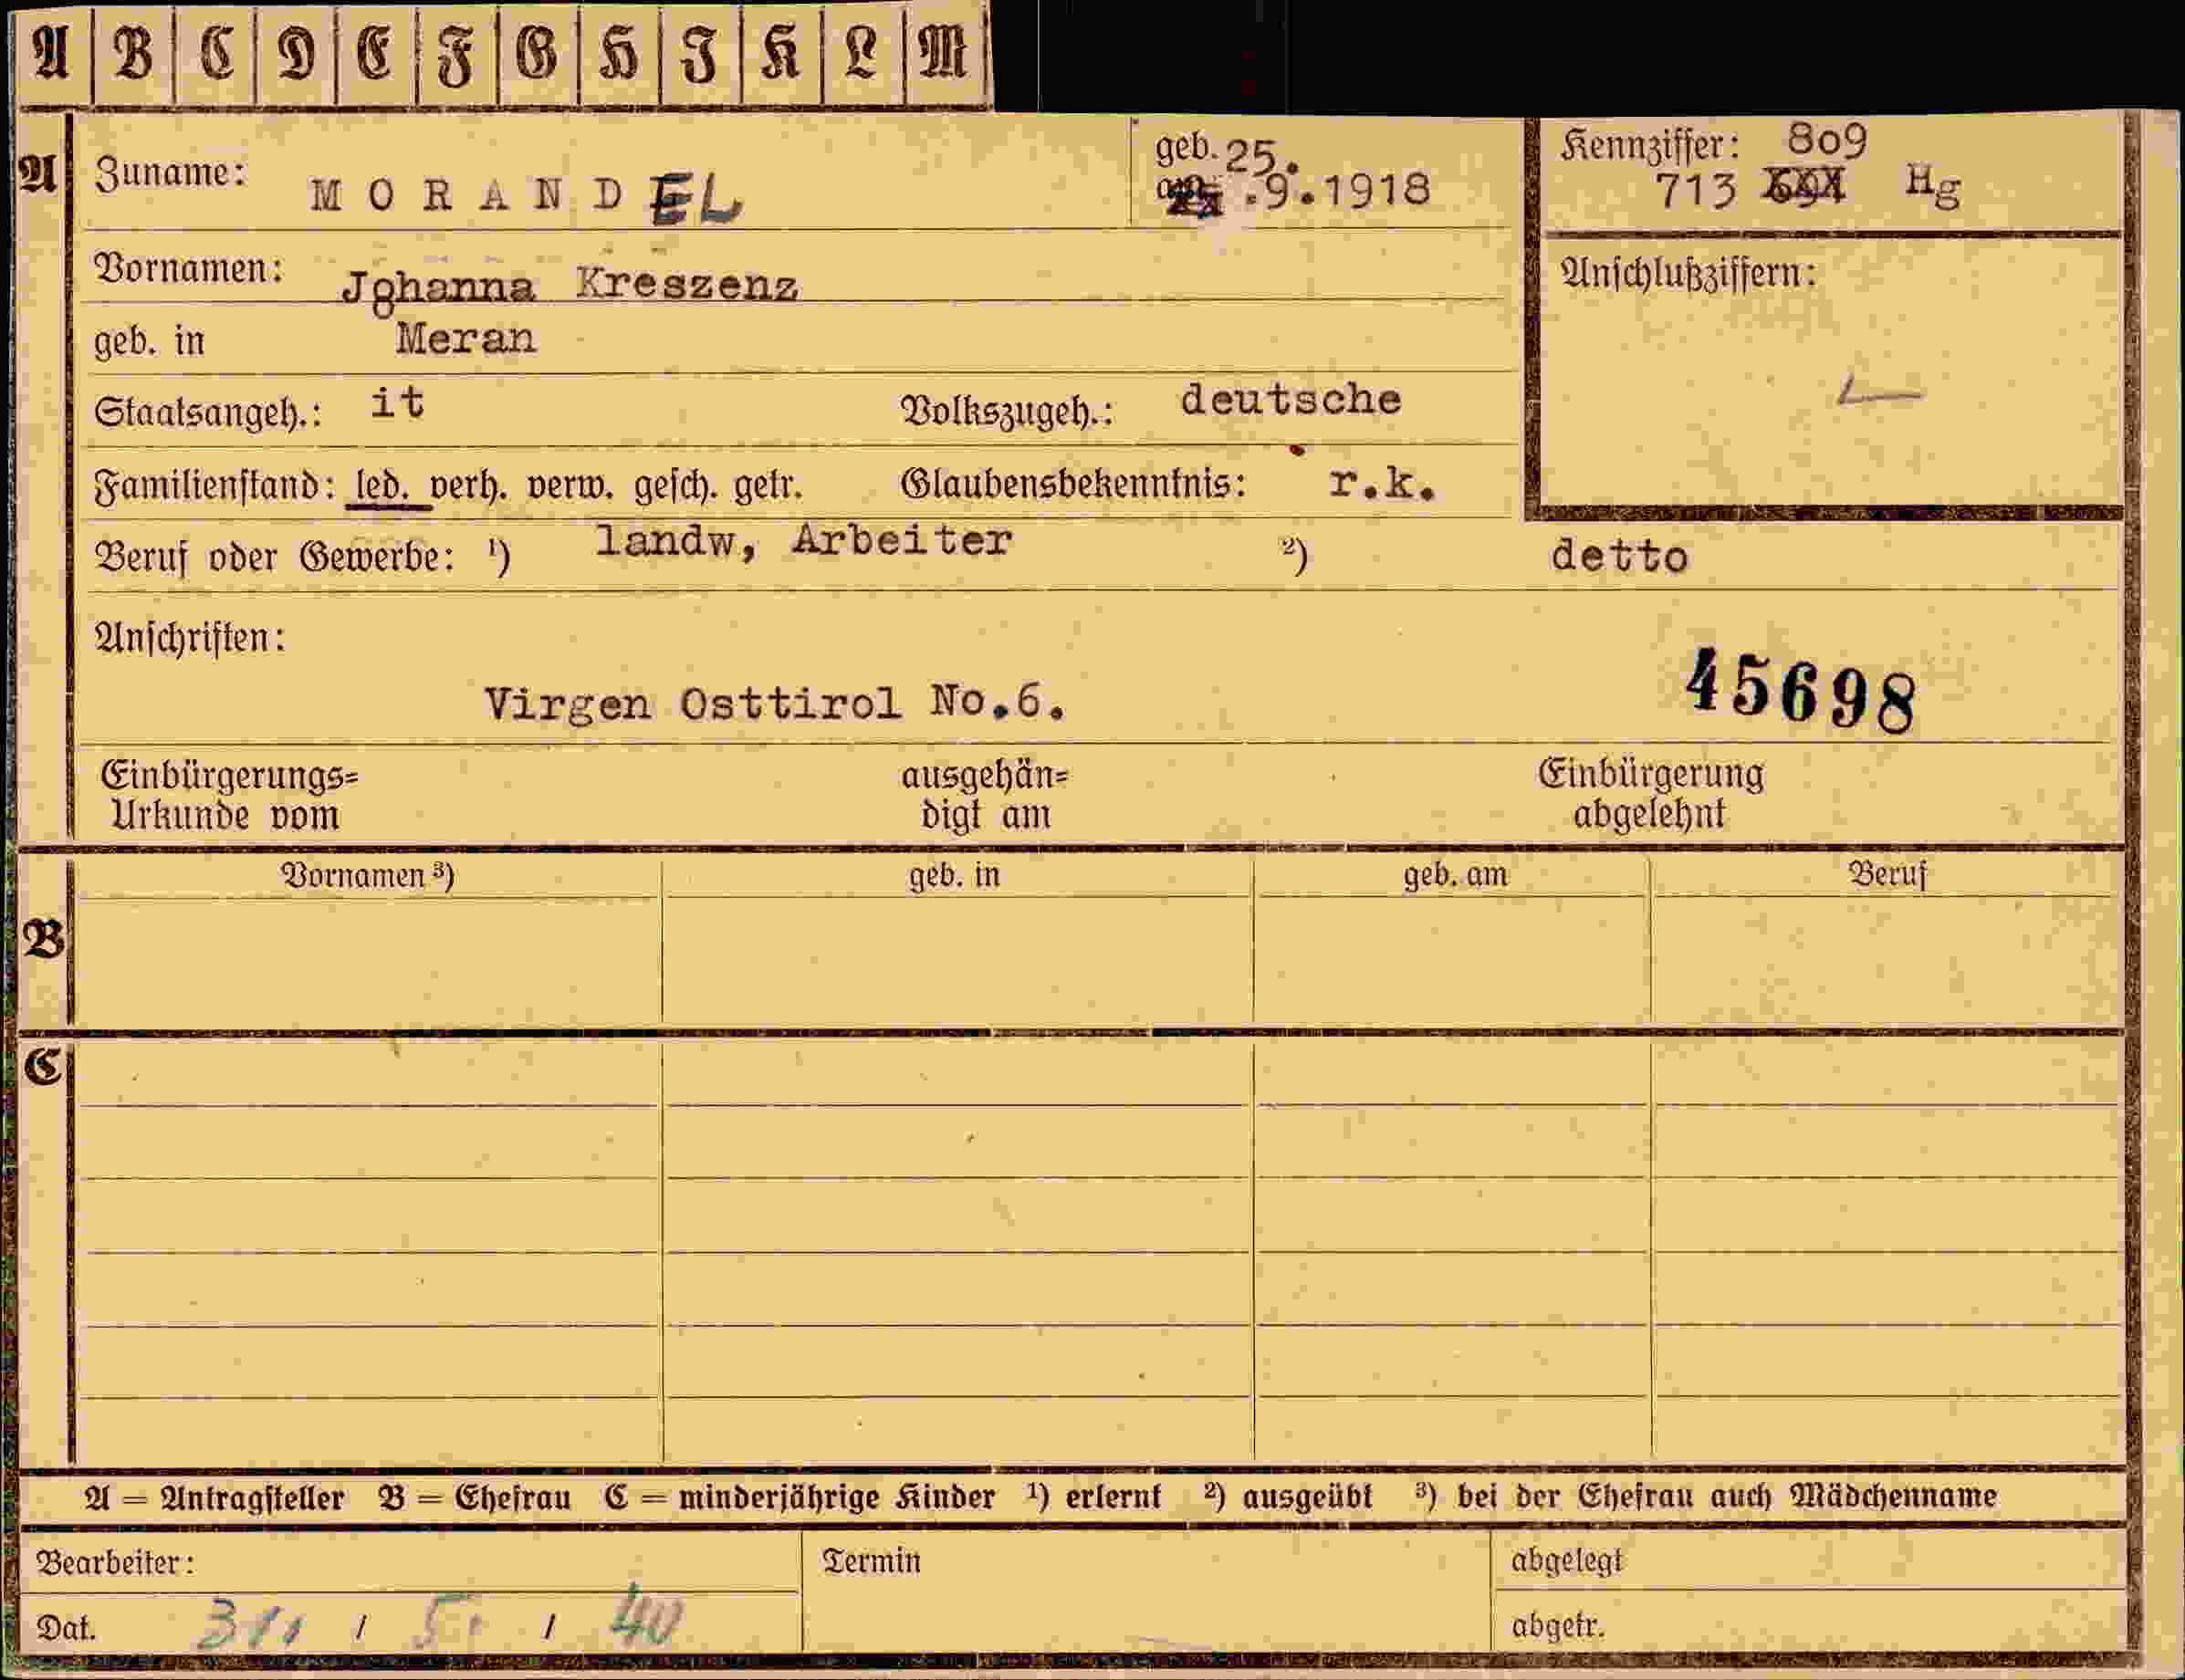 A B C D E F G H I K L M
A Zuname: MORANDEL geb. 25. am .9.1918 Kennziffer: 809
713 Hg
Vornamen: Johanna Kreszenz Anschlußziffern:
geb. in Meran
Staatsangeh.: it Volkszugeh.: deutsche
Familienstand: led. verh. verw. gesch. getr. Glaubensbekenntnis: r.k.
Beruf oder Gewerbe: ¹) landw, Arbeiter ²) detto
Anschriften:
Virgen Osttirol No.6. 45698
Einbürgerungs= ausgehän= Einbürgerung
Urkunde vom digt am abgelehnt
Vornamen ³) geb. in geb. am Beruf
B
C
A = Antragsteller B = Ehefrau C = minderjährige Kinder ¹) erlernt ²) ausgeübt ³) bei der Ehefrau auch Mädchenname
Bearbeiter: Termin abgelegt
Dat. 31. / 5. / 40 abgetr.